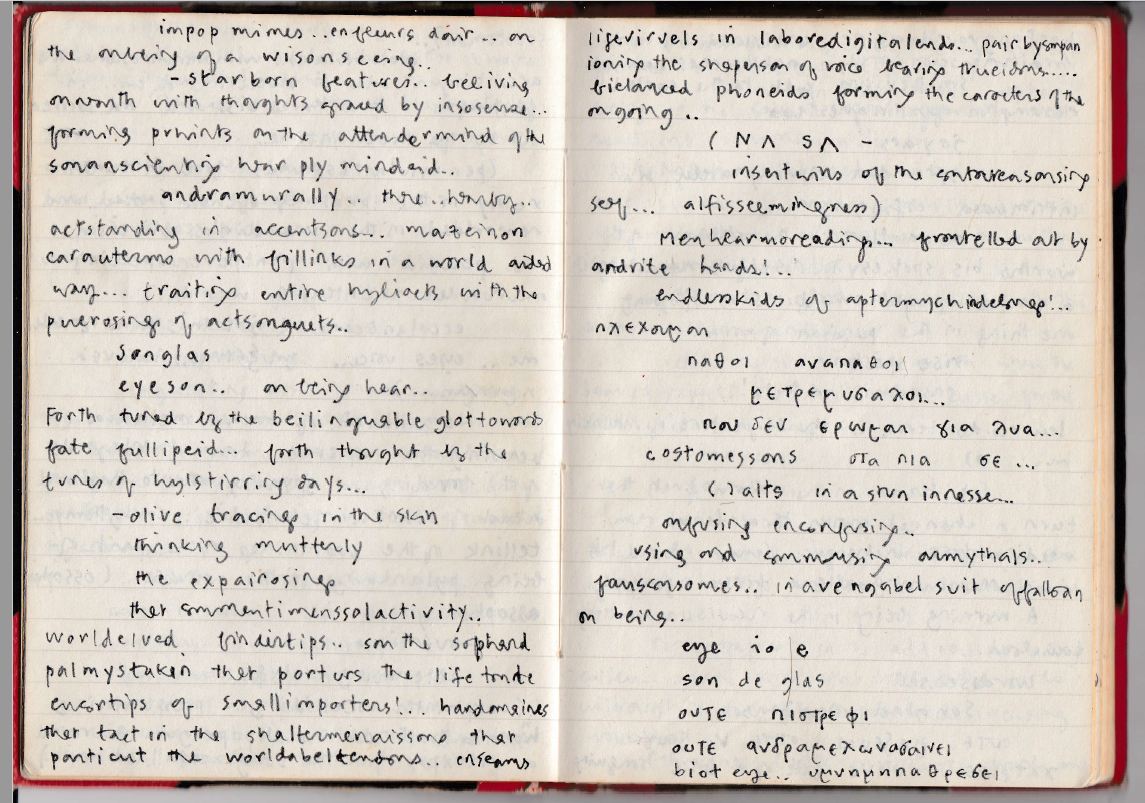 impop mimes.. enfleurs dair... on
the onbeing of a wisonseeing..
- starborn features.. beeliving
onwarth with thoughts graced by insosense...
forming prhints on the attendermind of the
sonanscientrix hear ply mindeid...
andramurally.. thre.. hearby...
actstanding in accentsons... mazeinon
carautermo with fillinks in a world aided
way... traiting entire hyliacts with the
puerosing of actsonguets..
Songlas
eyeson... on being hear..
Forth tuned by the beilinguable glottowords
fate fullipeid... forth thought by the
tunes of hylstirring days...
-olive tracings in the skin
thinking mutterly
the expairosings
that commentimenssolactivity..
worldelved findertips.. son the sophand
palmystaken that porturs the life tonte
encortips of smallimporters!... handomaines
that tact in the shaltermenaissons that
particut the worldabeltendons... enseams
lifevirvels in laboredigitalends... pair by sompan
ioning the shaperson of voice bearing truceidoms.....
bielanced phoneido forming the caracters of the
ongoing..
( Ν Λ S Λ -
insertwins of the contareasonsing
self... alfisseemingness)
Menhearmoreading... frontelled out by
andrite heads!...
endlesskids of aptermychindelongs!...
πλεχομαι
παθοι αναπαθοι
μετρεμυσαλοι...
που δεν ερωμαι για λυα...
costomessons στα πια σε ...
( ) alts in a stun innesse...
onfusing enconfusing..
using and commusing armythals..
fausconsomes.. in avengabel suit offalloan
on being..
eye io | e
son de glas
ουτε πιστρεφι
ουτε ανδραμεχωνασαινει
biot eye.. υμνημηπαθρεσει